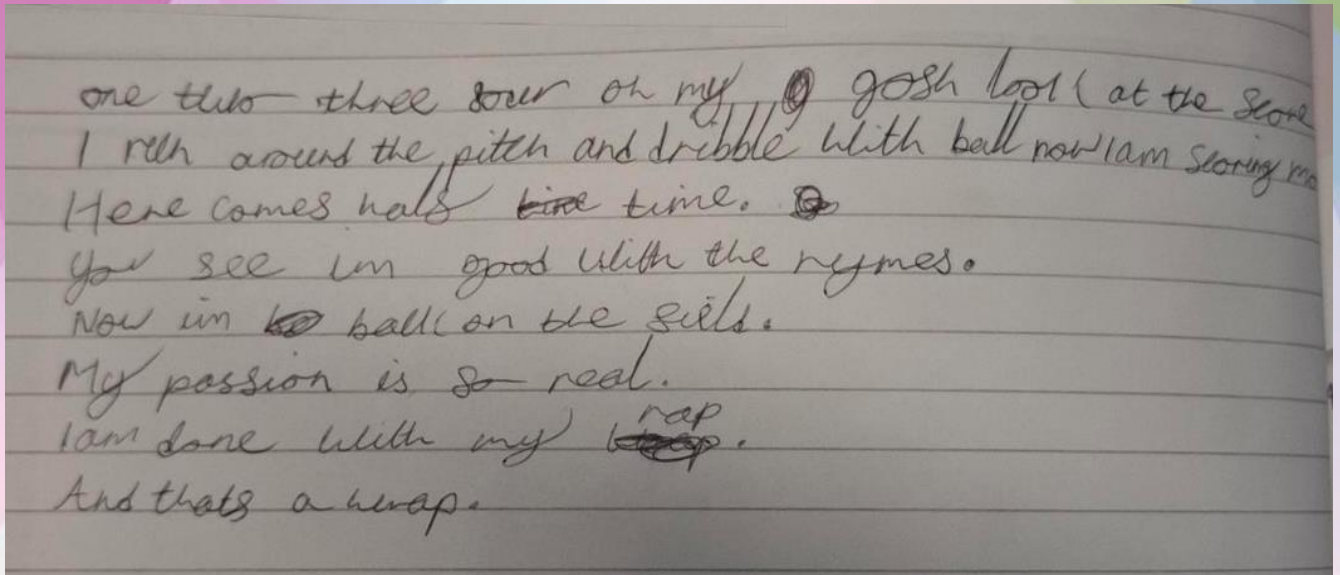 one two three four oh my gosh look at the score
I run around the pitch and dribble with ball now I am scoring mo
Here comes half time.
You see im good with the rymes.
Now im back on the field.
My passion is so real.
I am done with my rap.
And thats a wrap.